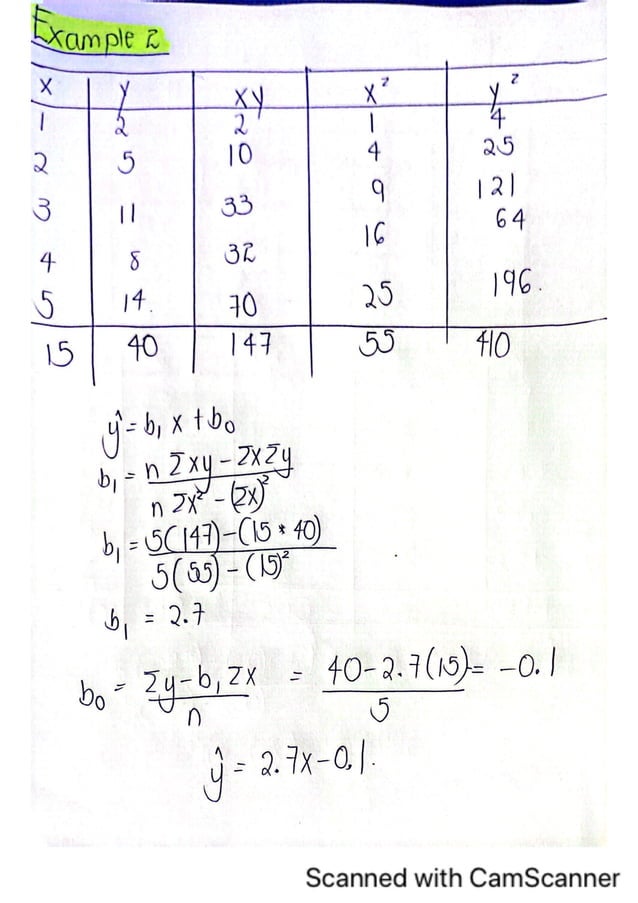 Example 2
x y xy x² y²
1 2 2 1 4
2 5 10 4 25
3 11 33 9 121
4 8 32 16 64
5 14. 70 25 196.
15 40 147 55 410
ŷ = b₁ x + b₀
b₁ = n Σxy - ΣxΣy / n Σx² - (Σx)²
b₁ = 5(147) - (15 * 40) / 5(55) - (15)²
b₁ = 2.7
b₀ = Σy - b₁ Σx / n = 40 - 2.7(15) / 5 = -0.1
ŷ = 2.7x - 0.1.
Scanned with CamScanner